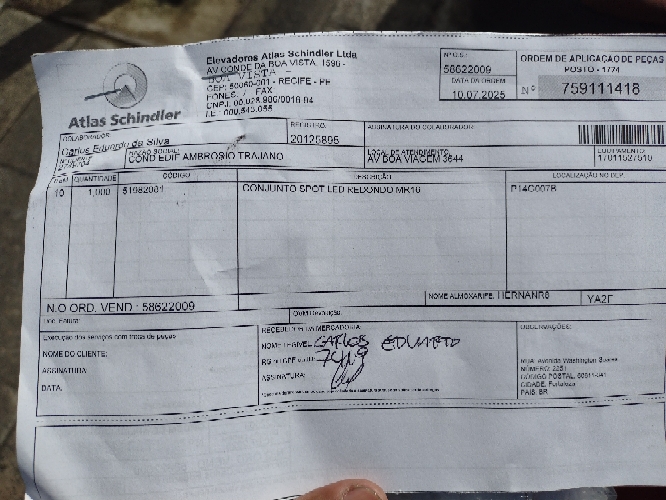 Atlas Schindler
Elevadores Atlas Schindler Ltda
AV CONDE DA BOA VISTA, 1596 -
BOA VISTA -
CEP: 50060-001 - RECIFE - PE
FONES: / FAX
CNPJ: 00.028.986/0016-94
Nº O.S.:
58622009
DATA DA ORDEM
10.07.2025
ORDEM DE APLICAÇÃO DE PEÇAS
POSTO - 1774
Nº 759111418
COLABORADOR:
Carlos Eduardo da Silva
REGISTRO:
20125895
ASSINATURA DO COLABORADOR:
RAZÃO SOCIAL:
COND EDIF AMBROSIO TRAJANO
LOCAL DE ATENDIMENTO:
AV BOA VIAGEM 3644
EQUIPAMENTO:
17011527510
ITEM QUANTIDADE CÓDIGO DESCRIÇÃO LOCALIZAÇÃO NO DEP.
10 1,000 51982081 CONJUNTO SPOT LED REDONDO MR16 P14G007B
N.O ORD. VEND : 58622009
NOME ALMOXARIFE: HERNANR8
YA2F
Doc. Fatura:
Execução dos serviços com troca de peças
NOME DO CLIENTE:
ASSINATURA:
DATA:
RECEBEDOR DA MERCADORIA:
NOME LEGÍVEL: CARLOS EDUARDO
RG OU CPF
ASSINATURA:
OBSERVAÇÕES:
RUA: Avenida Washington Soares
NÚMERO: 2251
CÓDIGO POSTAL: 60811-341
CIDADE: Fortaleza
PAÍS: BR